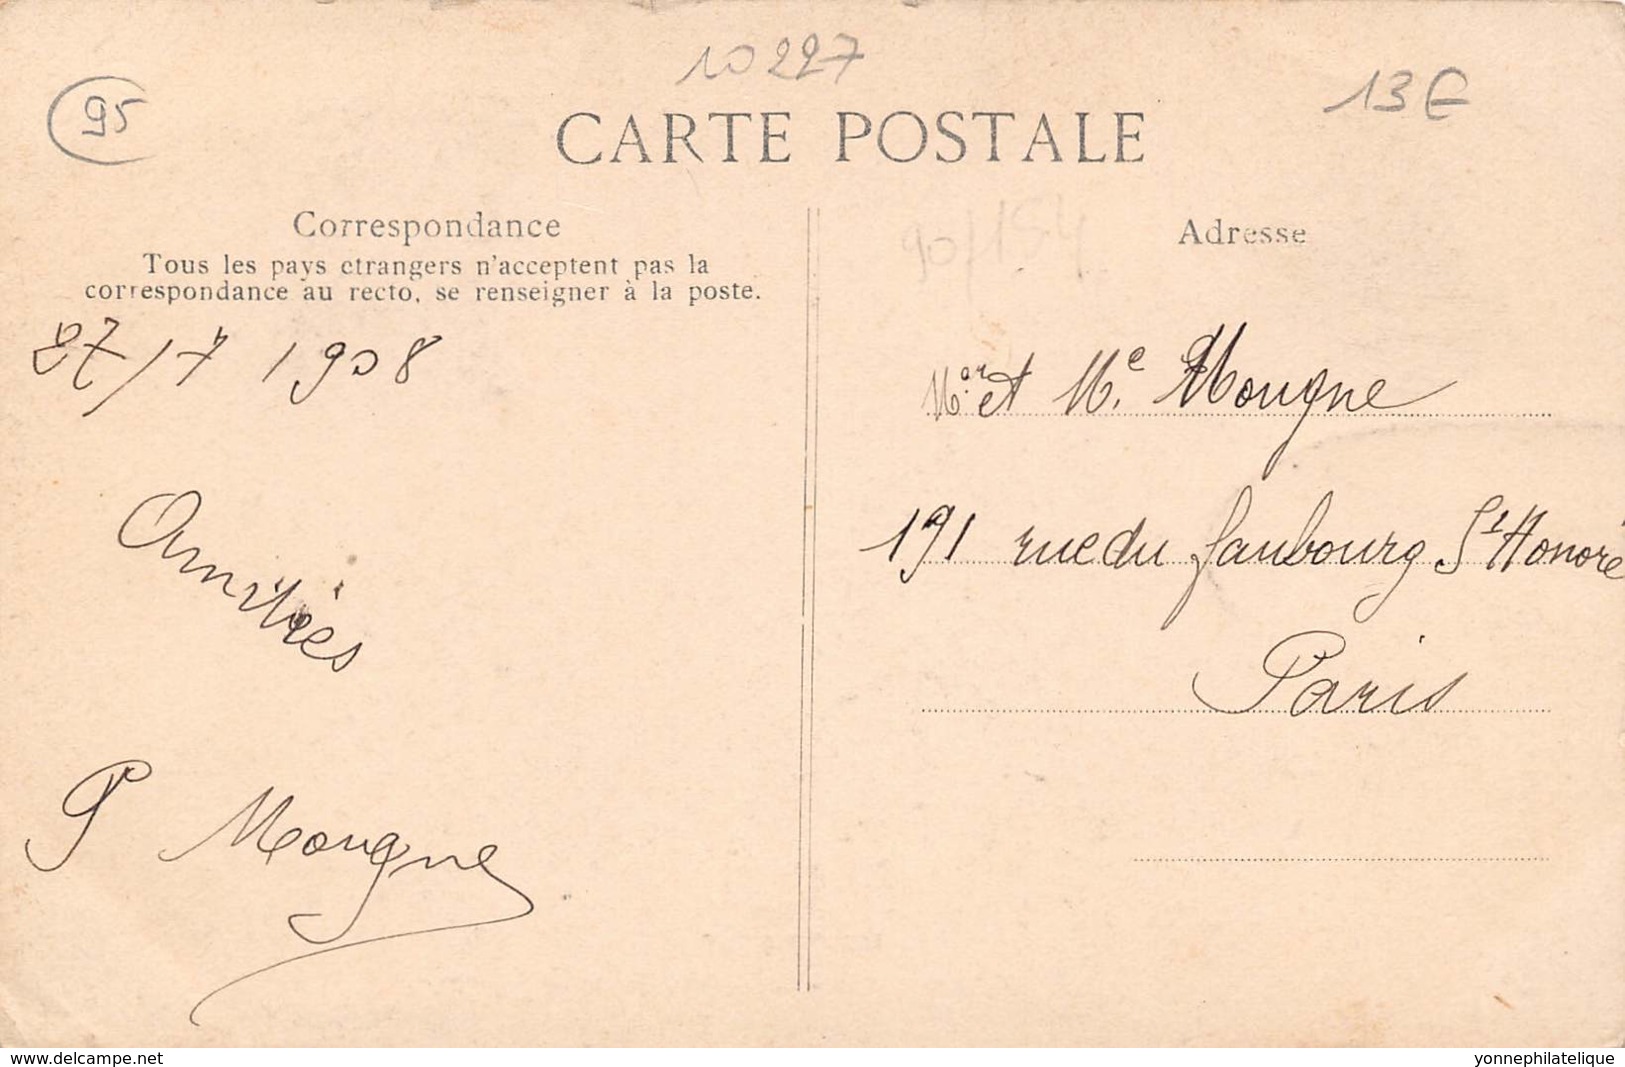 10227
95
13€
CARTE POSTALE
Correspondance
Tous les pays etrangers n'acceptent pas la
correspondance au recto, se renseigner à la poste.
27/7 1908
Amitiés
P Mougne
90/154
Adresse
Mr. et Me. Mougne
191 rue du faubourg St Honoré
Paris
www.delcampe.net
yonnephilatelique